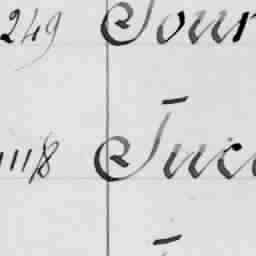 249 Tour
1118 Tuc